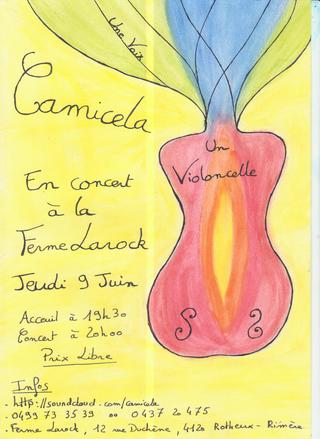 Une Voix
Camicela
Un
Violoncelle
En concert
à la
Ferme Larock
Jeudi 9 Juin
Acceuil à 19h30
Concert à 20h00
Prix Libre
Infos
. http://soundcloud.com/camicela
. 0499 73 35 39 ou 0437 20 475
. Ferme Larock, 12 rue Duchêne, 4120 Rotheux-Rimière